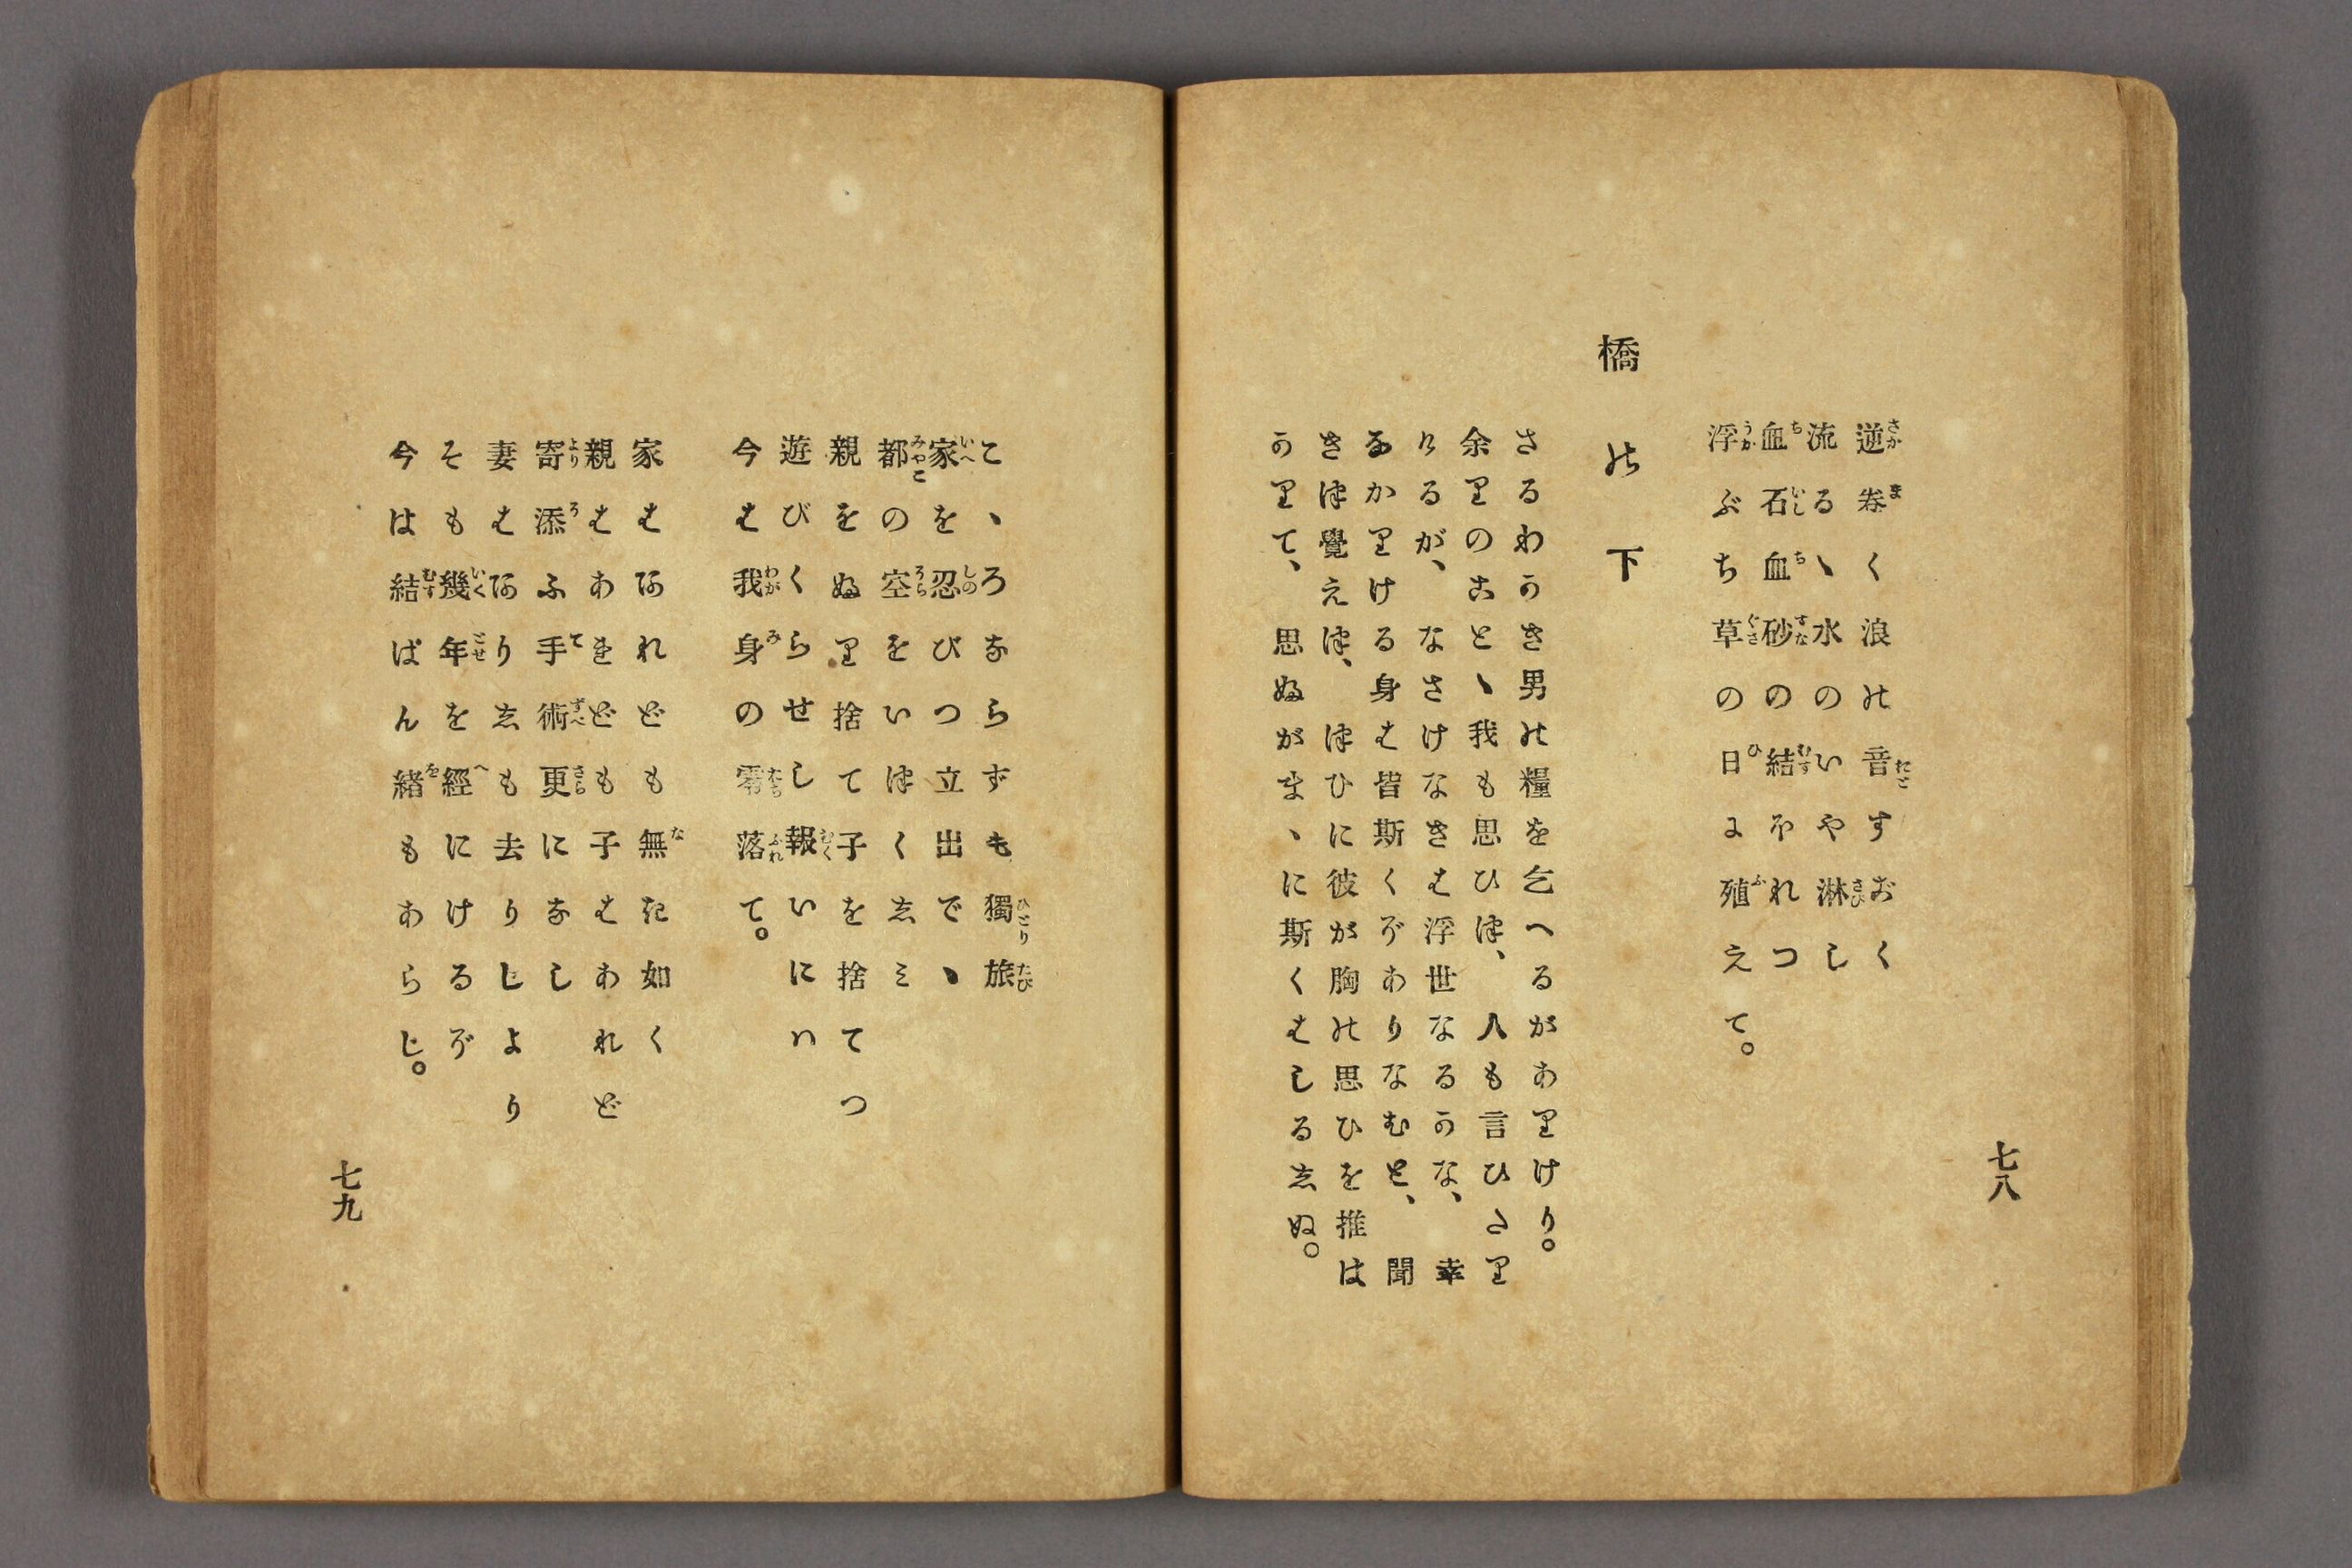 逆卷く浪の音すおく
流るゝ水のいや淋し
血石血砂の結ぼれつ
浮ぶち草の日に殖えて。
橋の下
さるわかき男の糧を乞へるがありけり。
余りのことゝ我も思ひつ、人も言ひたり
けるが、なさけなきは浮世なるかな、幸
なかりける身は皆斯くぞありなむと、聞
きつ覺えつ、つひに彼が胸の思ひを推は
かりて、思ぬがまゝに斯くはしるしぬ。
七八
こゝろならずも獨旅
家を忍びつ立出でゝ
都の空をいつくしミ
親をぬり捨て子を捨てつ
遊びくらせし報いにハ
今は我身の零落て。
家はあれども無き如く
親はあれども子はあれど
寄添ふ手術更になし
妻はありしも去りしより
そも幾年を經にけるぞ
今は結ばん緒もあらじ。
七九